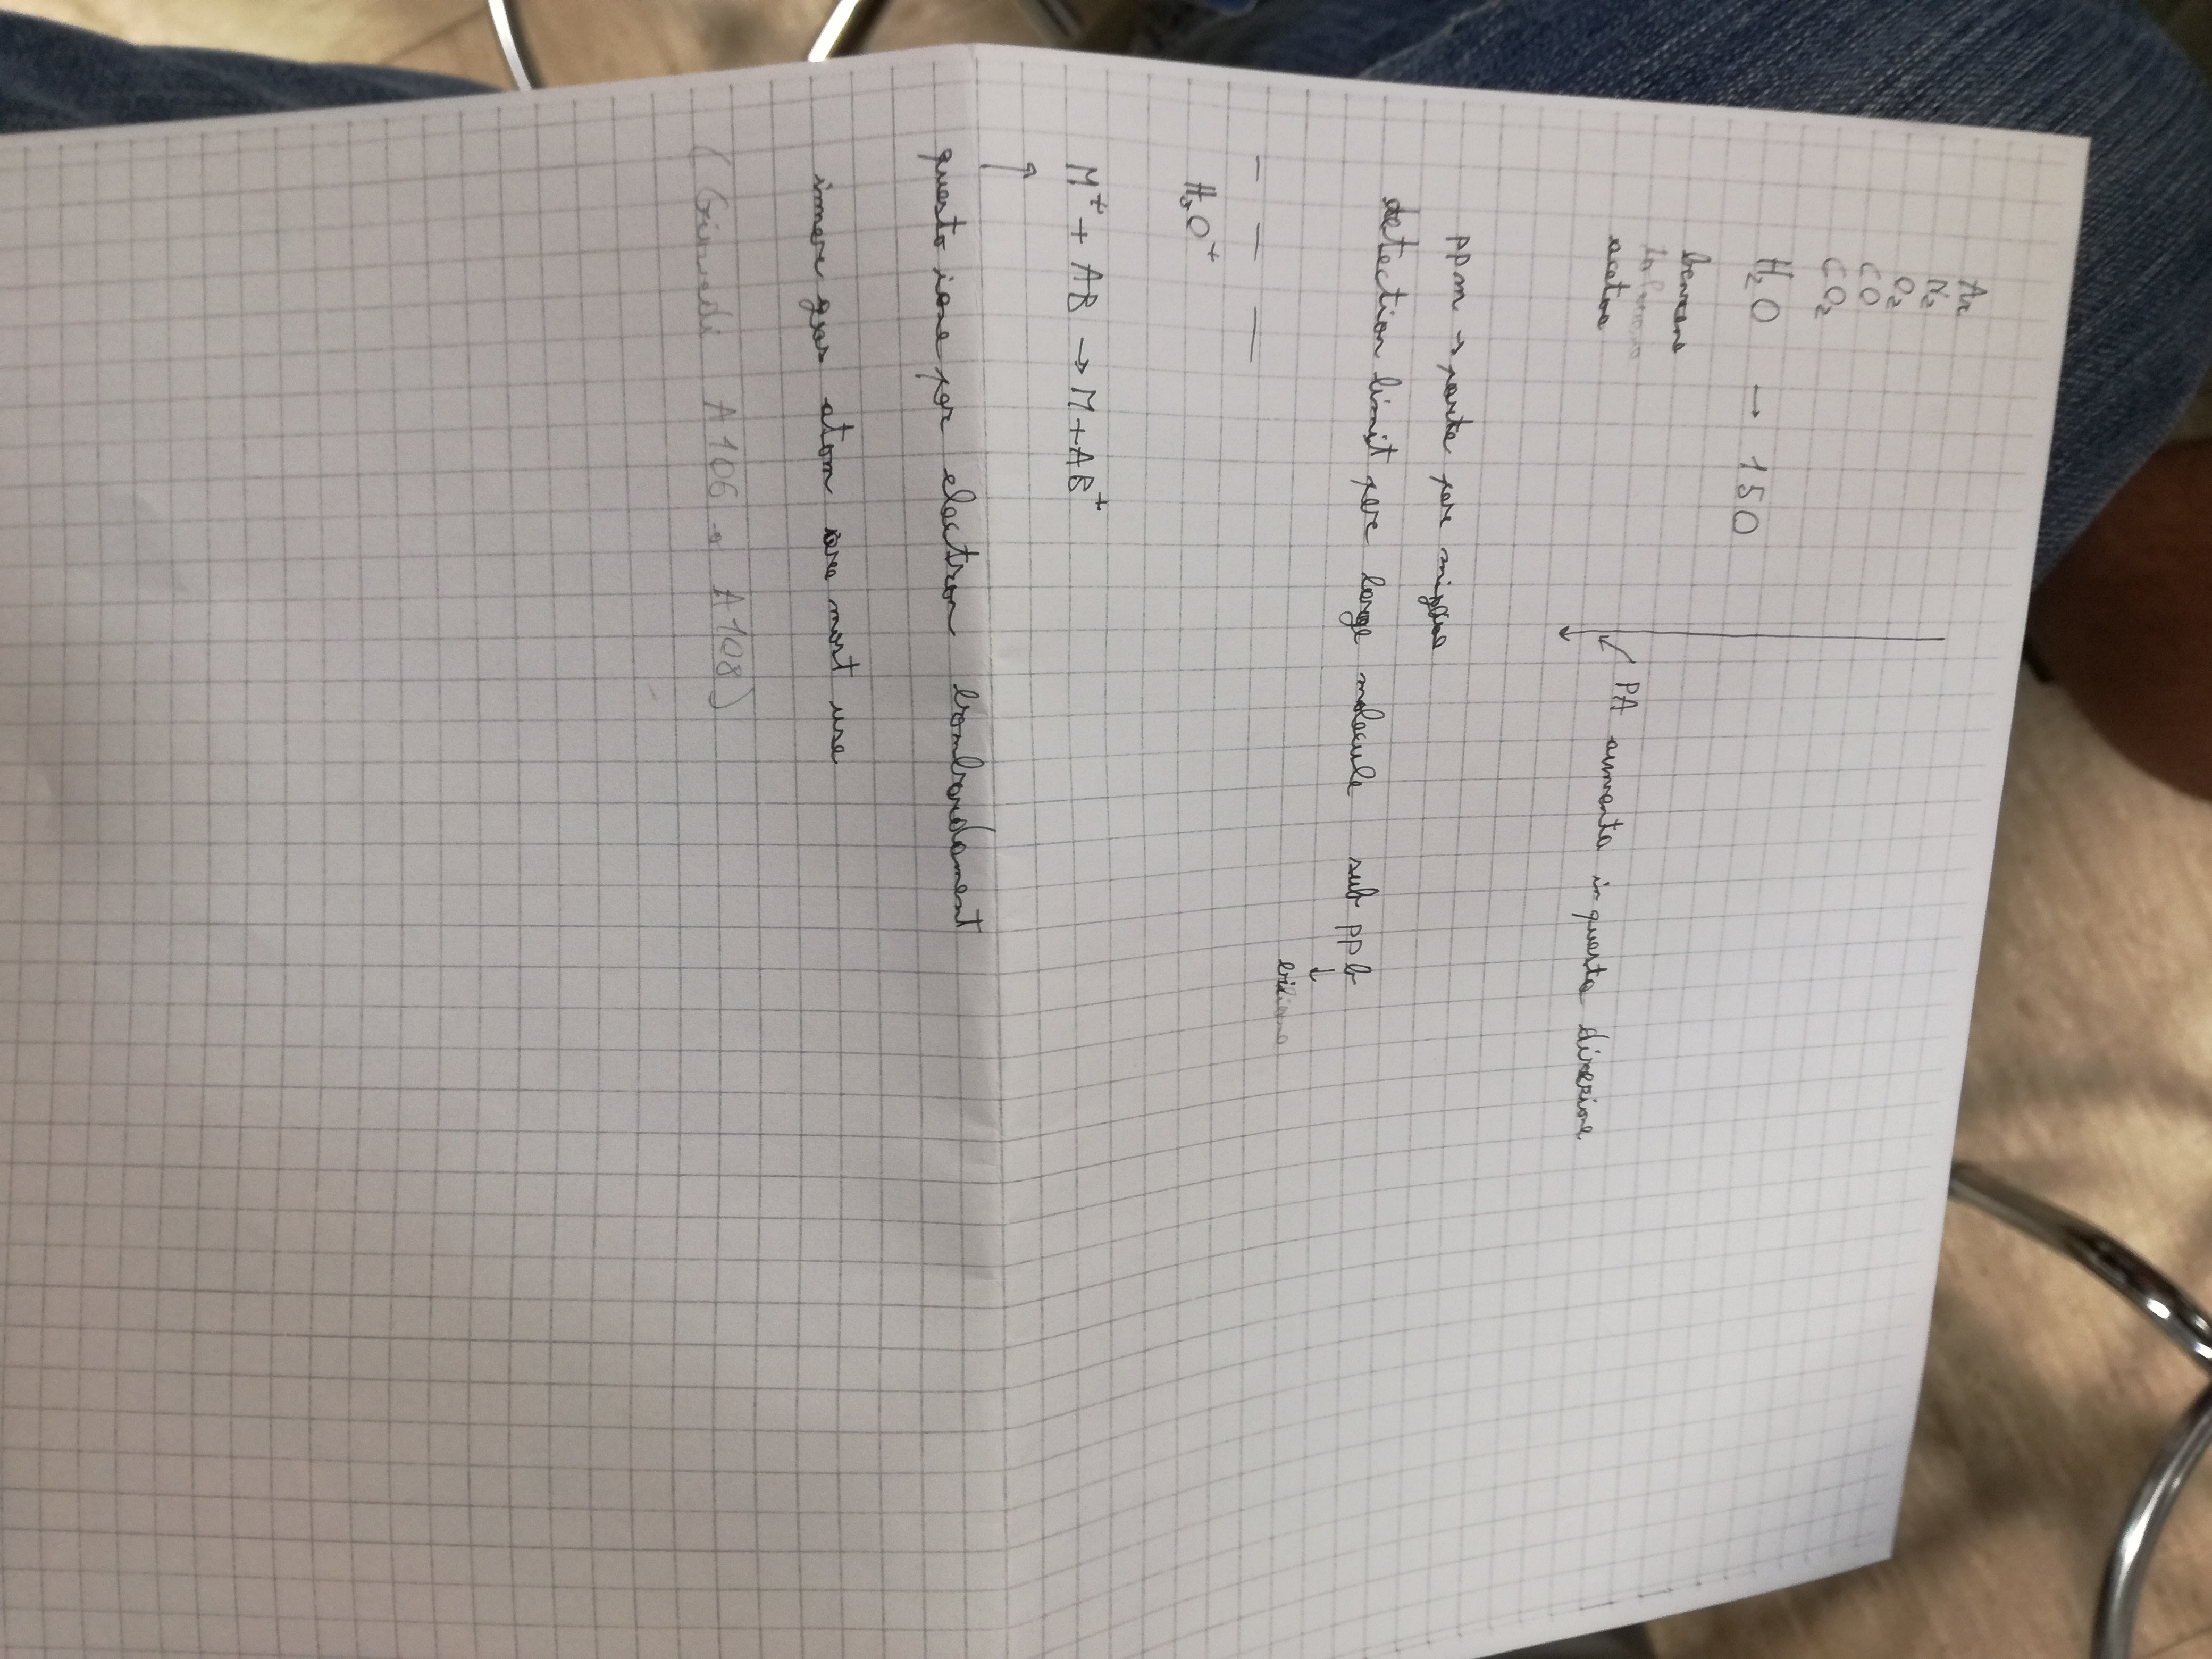 Ar
N₂
O₂
CO
CO₂
H₂O → 150
benzene
acetone
PA aumenta in questa direzione
ppm → parte per miglione
detection limit per large molecule sub ppb
↓
H₃O⁺
M⁺ + AB → M + AB⁺
↑
questo ione per electron bombardament
gas atom are most use
( A106 a A108)